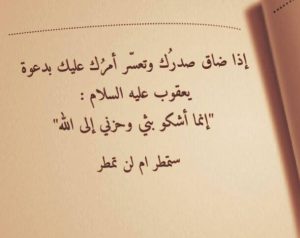 إذا ضاق صدرُك وتعسّر أمرُك عليك بدعوة
يعقوب عليه السلام :
"إنما أشكو بثي وحزني إلى الله"
ستمطر ام لن تمطر